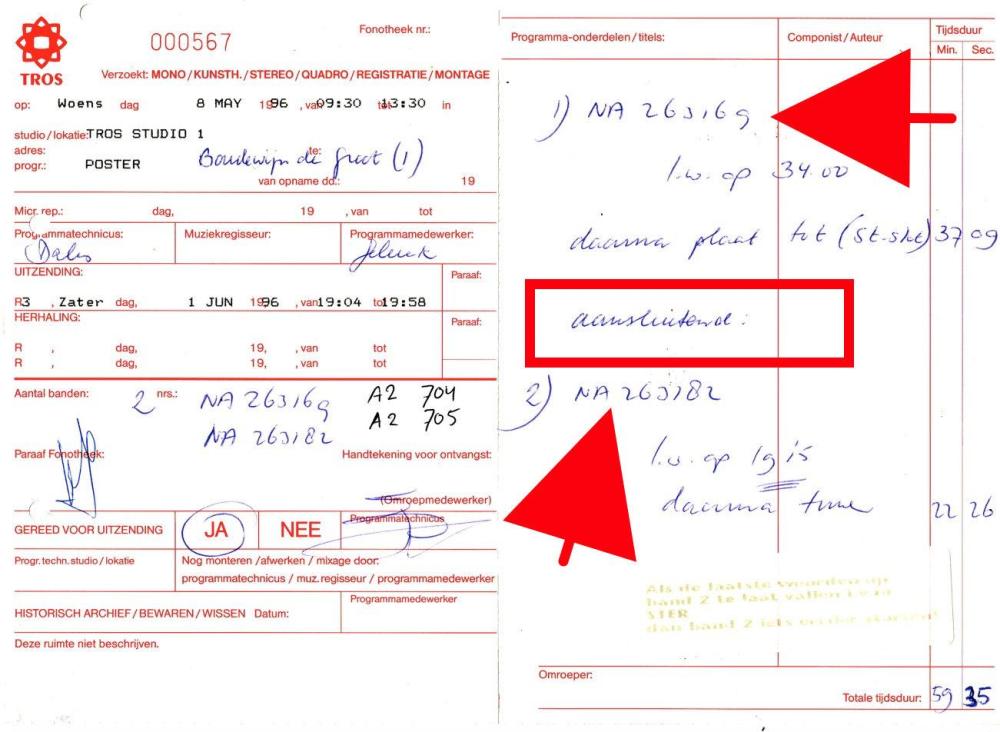 TROS
000567
Fonotheek nr.:
Verzoekt: MONO/KUNSTH./STEREO/QUADRO/REGISTRATIE/MONTAGE
op: Woens dag 8 MAY 1996 , van 09:30 tot 13:30 in
studio/lokatie: TROS STUDIO 1
adres: te:
progr.: POSTER Boudewijn de Groot (1)
van opname dd.: 19
Micr. rep.: dag, 19 , van tot
Programmatechnicus: Muziekregisseur: Programmamedewerker:
UITZENDING: Paraaf:
R3 , Zater dag, 1 JUN 1996 , van 19:04 tot 19:58
HERHALING: Paraaf:
R , dag, 19 , van tot
R , dag, 19 , van tot
Aantal banden: 2 nrs.: NA 263169 A2 704
NA 263182 A2 705
Paraaf Fonotheek: Handtekening voor ontvangst:
(Omroepmedewerker)
GEREED VOOR UITZENDING JA NEE Programmatechnicus
Progr.techn.studio/lokatie Nog monteren/afwerken/mixage door:
programmatechnicus/muz.regisseur/programmamedewerker
HISTORISCH ARCHIEF/BEWAREN/WISSEN Datum: Programmamedewerker
Deze ruimte niet beschrijven.
Programma-onderdelen/titels: Componist/Auteur Tijdsduur
Min. Sec.
1) NA 263169
l.w. op 34.00
daarna plaat tot (St-sht) 37 09
aansluitend:
2) NA 263182
l.w. op 19 15
daarna tune 22 26
Als de laatste woorden op
band 2 te laat vallen i.v.m
STER
dan band 2 iets eerder starten!
Omroeper:
Totale tijdsduur: 59 35